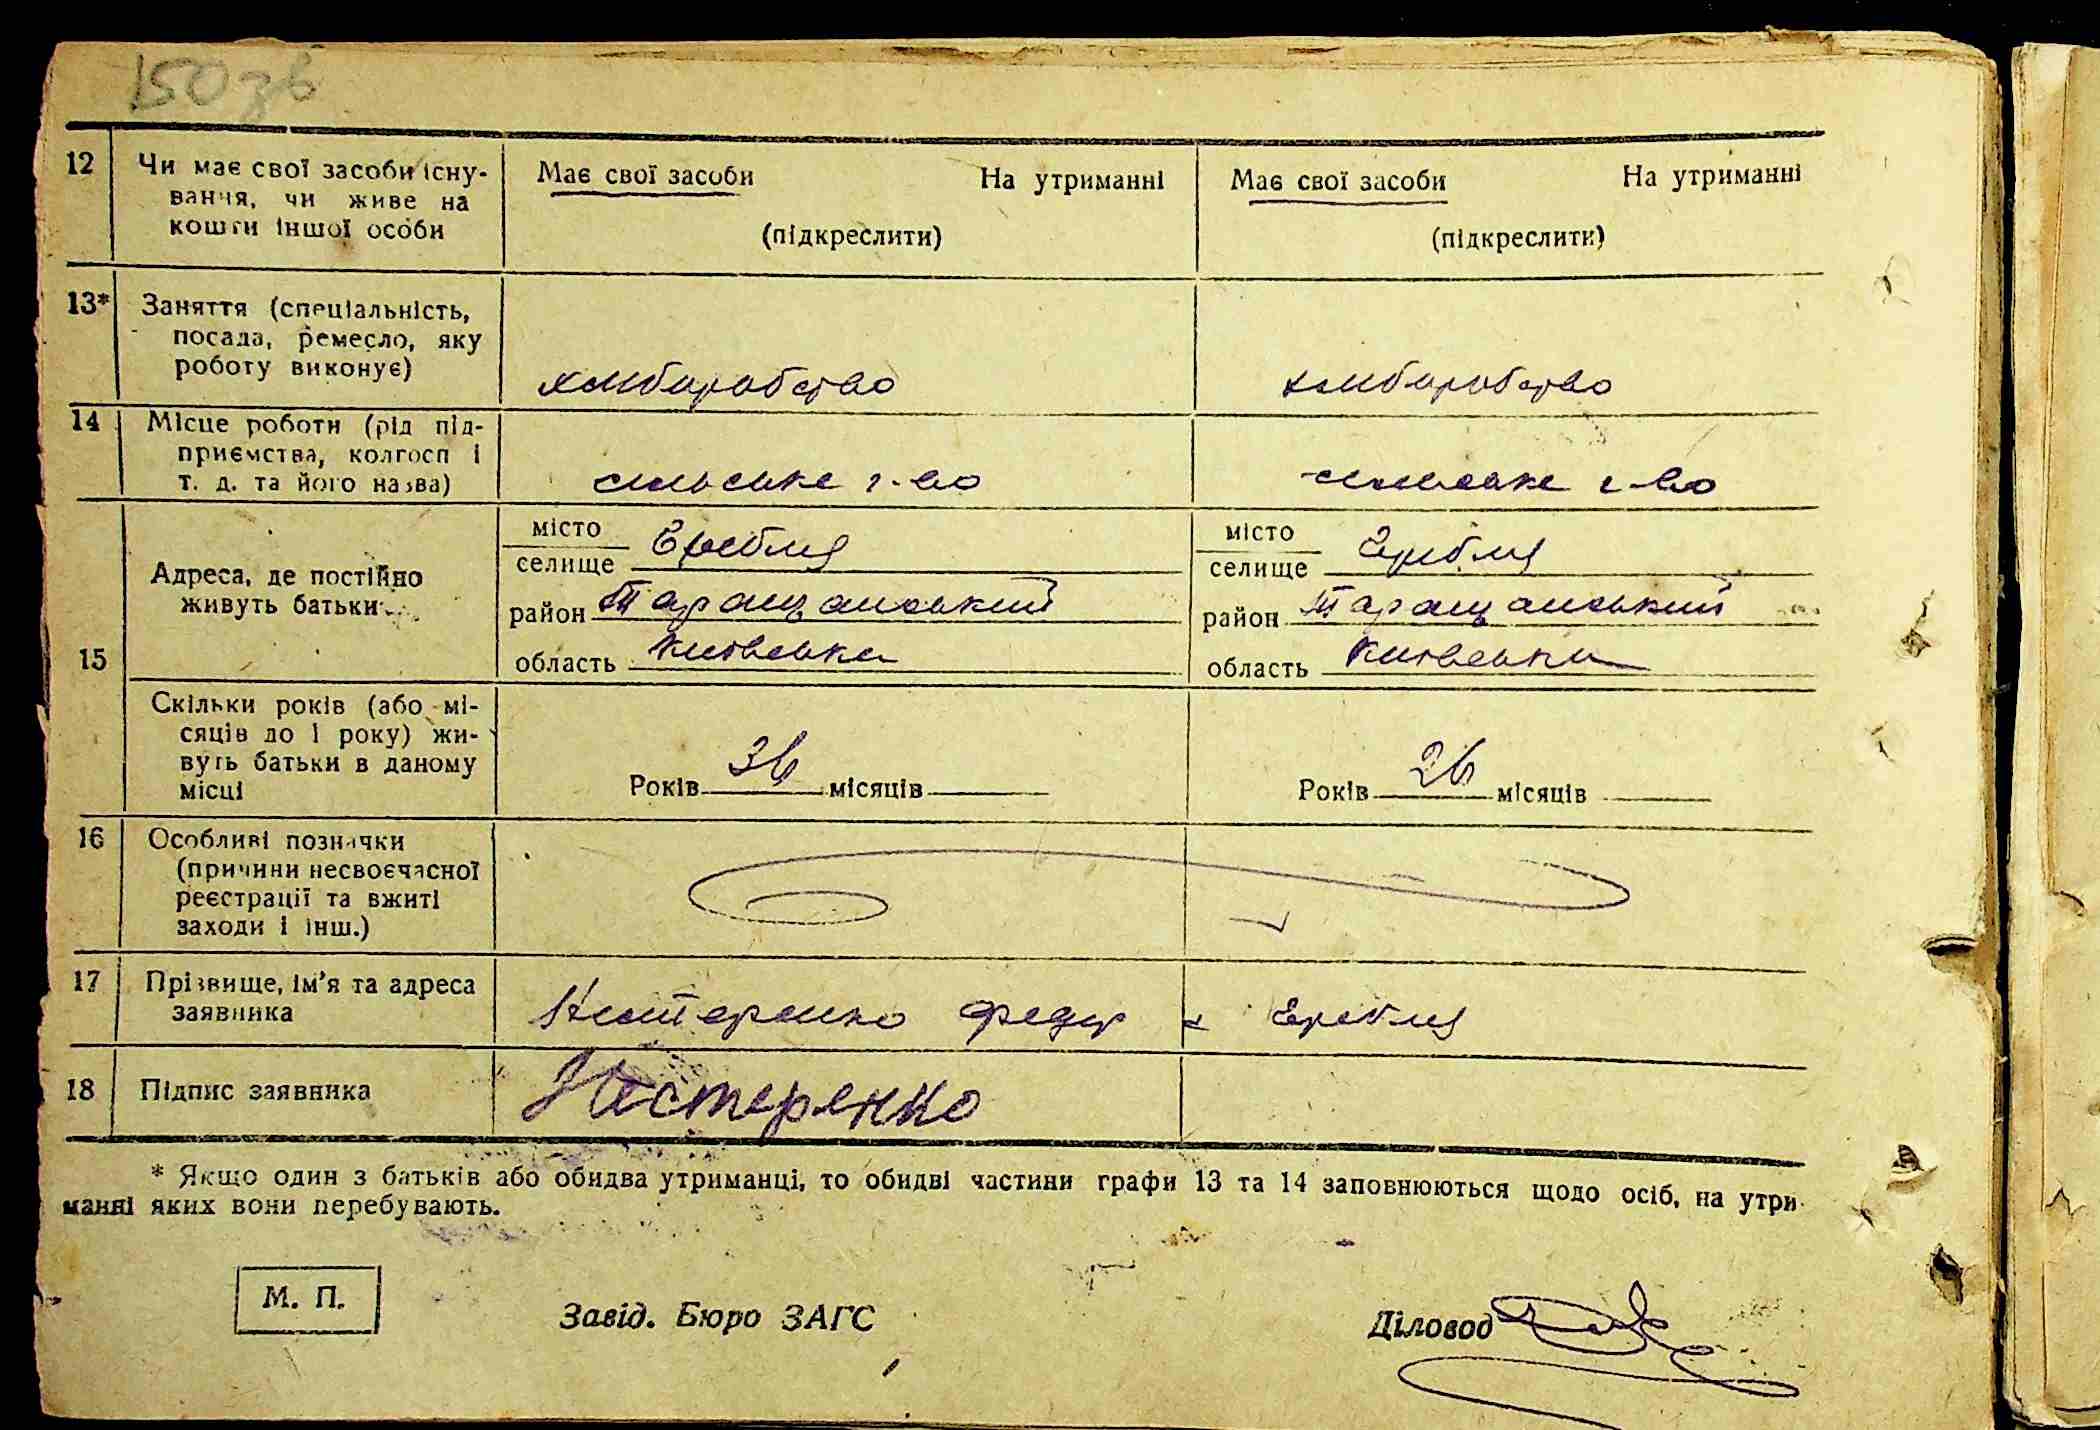 150 зв
12 Чи має свої засоби існу-
вання, чи живе на
кошти іншої особи
Має свої засоби На утриманні
(підкреслити)
Має свої засоби На утриманні
(підкреслити)
13* Заняття (спеціальність,
посада, ремесло, яку
роботу виконує)
хліборобство
хліборобство
14 Місце роботи (рід під-
приємства, колгосп і
т. д. та його назва)
сільське г-во
сільське г-во
15 Адреса, де постійно
живуть батьки
місто
селище Гребля
район Таращанський
область Київська
місто
селище Гребля
район Таращанський
область Київська
Скільки років (або мі-
сяців до 1 року) жи-
вуть батьки в даному
місці
Років 36 місяців
Років 26 місяців
16 Особливі позначки
(причини несвоєчасної
реєстрації та вжиті
заходи і інш.)
17 Прізвище, ім'я та адреса
заявника
Нистеренко Федір х Гребля
18 Підпис заявника
Нестеренко
* Якщо один з батьків або обидва утриманці, то обидві частини графи 13 та 14 заповнюються щодо осіб, на утри-
манні яких вони перебувають.
М. П.
Завід. Бюро ЗАГС
Діловод